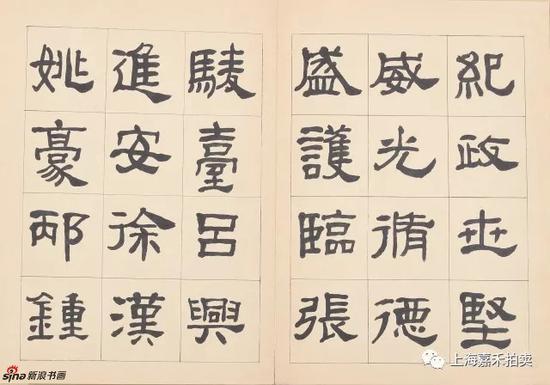 紀政世堅
威光脩德
盛護臨張
臺呂興
進安徐漢
姚豪邴鍾
sina新浪书画
上海嘉禾拍卖